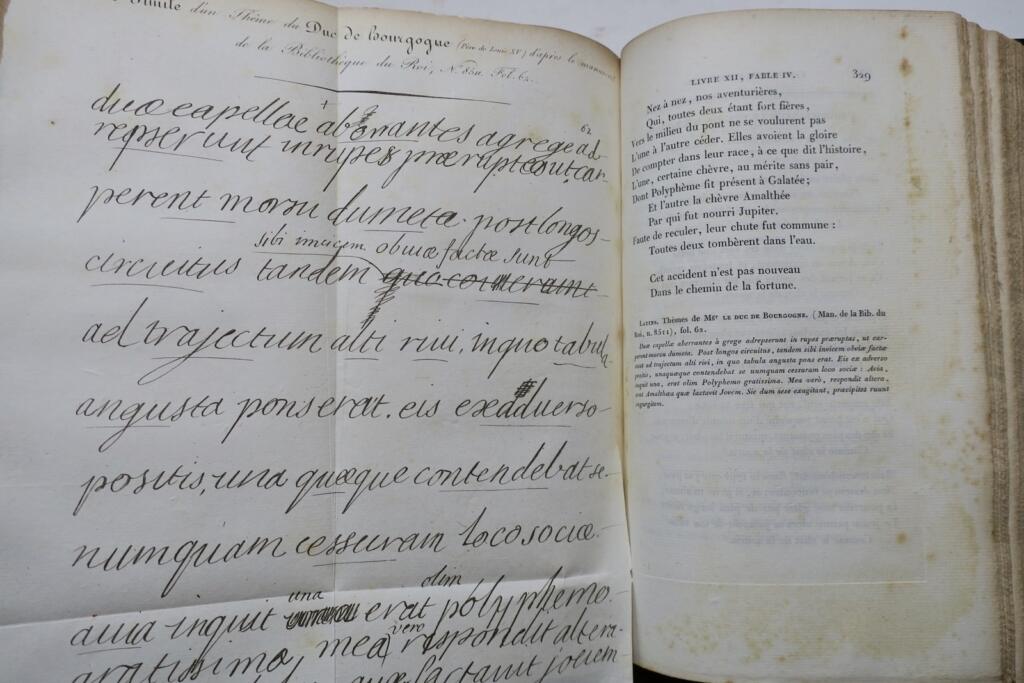 Simile d'un Thême du Duc de Bourgogne (Père de Louis XV) d'après le manuscrit
de la Bibliothèque du Roi, N.º 8511. Fol. 62.
62
duæ capellæ aberrantes agrege ad-
repserunt inrupes præruptas ut car-
perent morsu dumeta. post longos
sibi inuicem obuiæ factæ sunt
circuitus tandem
ad trajectum alti riui, inquo tabula
angusta pons erat. eis exadduerso
positis, una quæque contendebat se-
numquam cessuram loco sociæ.
una olim
auia inquit erat polyphemo
vero
gratissima, mea respondit altera
quæ lactauit jouem
LIVRE XII, FABLE IV. 329
Nez à nez, nos aventurières,
Qui, toutes deux étant fort fières,
Vers le milieu du pont ne se voulurent pas
L'une à l'autre céder. Elles avoient la gloire
De compter dans leur race, à ce que dit l'histoire,
L'une, certaine chèvre, au mérite sans pair,
Dont Polyphème fit présent à Galatée;
Et l'autre la chèvre Amalthée
Par qui fut nourri Jupiter.
Faute de reculer, leur chute fut commune :
Toutes deux tombèrent dans l'eau.
Cet accident n'est pas nouveau
Dans le chemin de la fortune.
LATINS. Thèmes de Mgr LE DUC DE BOURGOGNE. (Man. de la Bib. du
Roi, n. 8511), fol. 62.
Duæ capellæ aberrantes à grege adrepserunt in rupes præruptas, ut car-
perent morsu dumeta. Post longos circuitus, tandem sibi invicem obviæ factæ
sunt ad trajectum alti rivi, in quo tabula angusta pons erat. Eis ex adverso
positis, unaquæque contendebat se numquam cessuram loco sociæ : Avia,
inquit una, erat olim Polyphemo gratissima. Mea verò, respondit altera,
erat Amalthæa quæ lactavit Jovem. Sic dum sese exagitant, præcipites ruunt
in gurgitem.